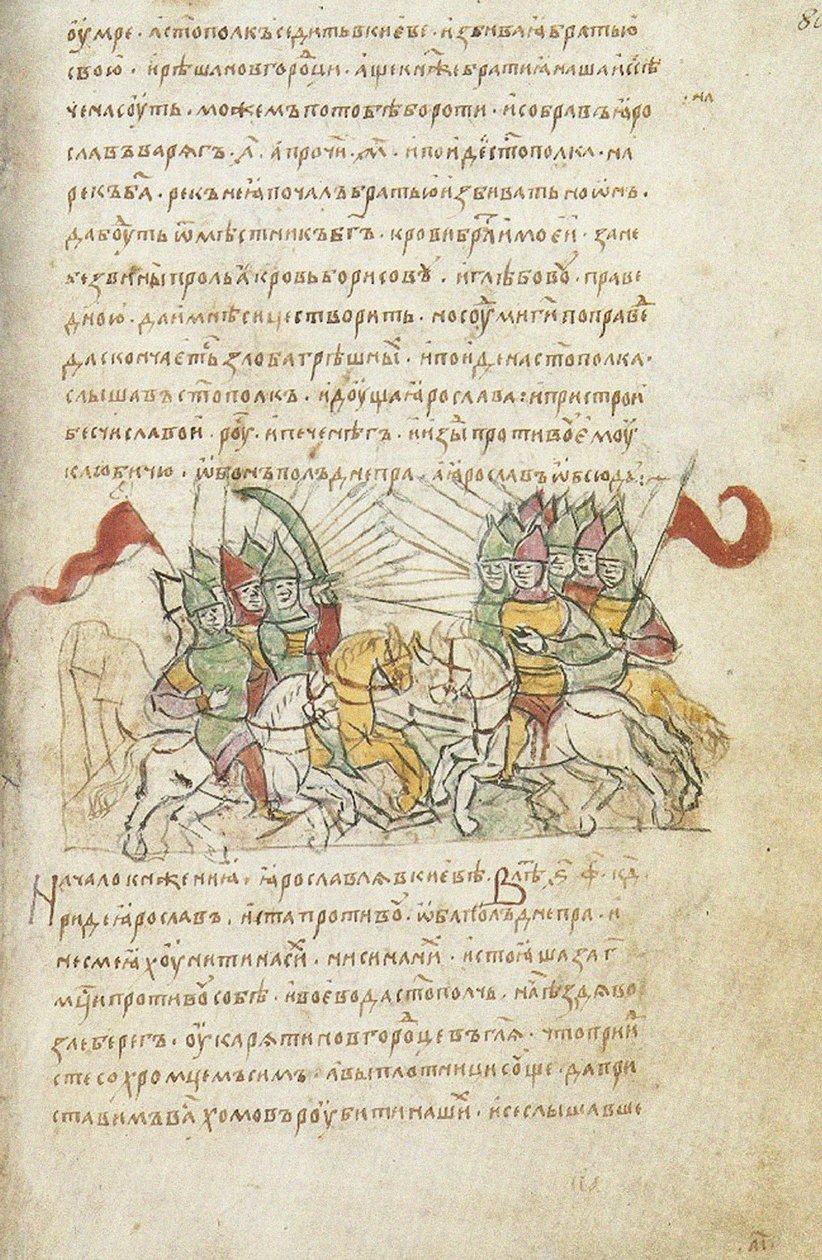 оумре · аст҃ополкъ седить в киеве · избивая братью
свою · и рѣша новгородци · аще княже братия наша иссѣ
чена суть · можем по тобѣ бороти · и собравъ яро
· на
славъ варягъ · а҃ · а прочии · м҃ · и поиде ст҃ополка · на
рекъ б҃а · рекъ не я почалъ братью избивать но онъ ·
да боудть ѿмѣстникъ бг҃ъ · крови братиі моеи · зане
без вины пролья кровь борисову · и глѣбову · праве
дною · да и мнѣ сице створить · но суди ми ги҃ по правдѣ
да скончается злоба грѣшныи · и поиде на ст҃ополка ·
слышавъ ст҃ополкъ · идоуща ярослава : и пристрои
бес числа вои · роуси · и печенѣгъ · и изыде противоу ему
к любичю · ѿ онъ полъ днепра · а ярославъ ѿ сюдъ : ~
Начало княжения · ярославля в киеве · В лѣт҃ · ҂ѕ҃ · ф҃ · кд҃ ·
Приде ярославъ · и ста противоу · оба полъ днепра · и
не смеяхоу ни ти на сихъ · ни си на нихъ · и стояша за г҃
мс҃ци противоу собѣ · и воевода ст҃ополчь · наѣздя во
зле берегъ · оукаряти новгородце въ гл҃я · что приидо
сте со хромцемъ симъ · а вы плотници соуще · да при
ставимъ вас хомовъ роубити наших · и се слышавше